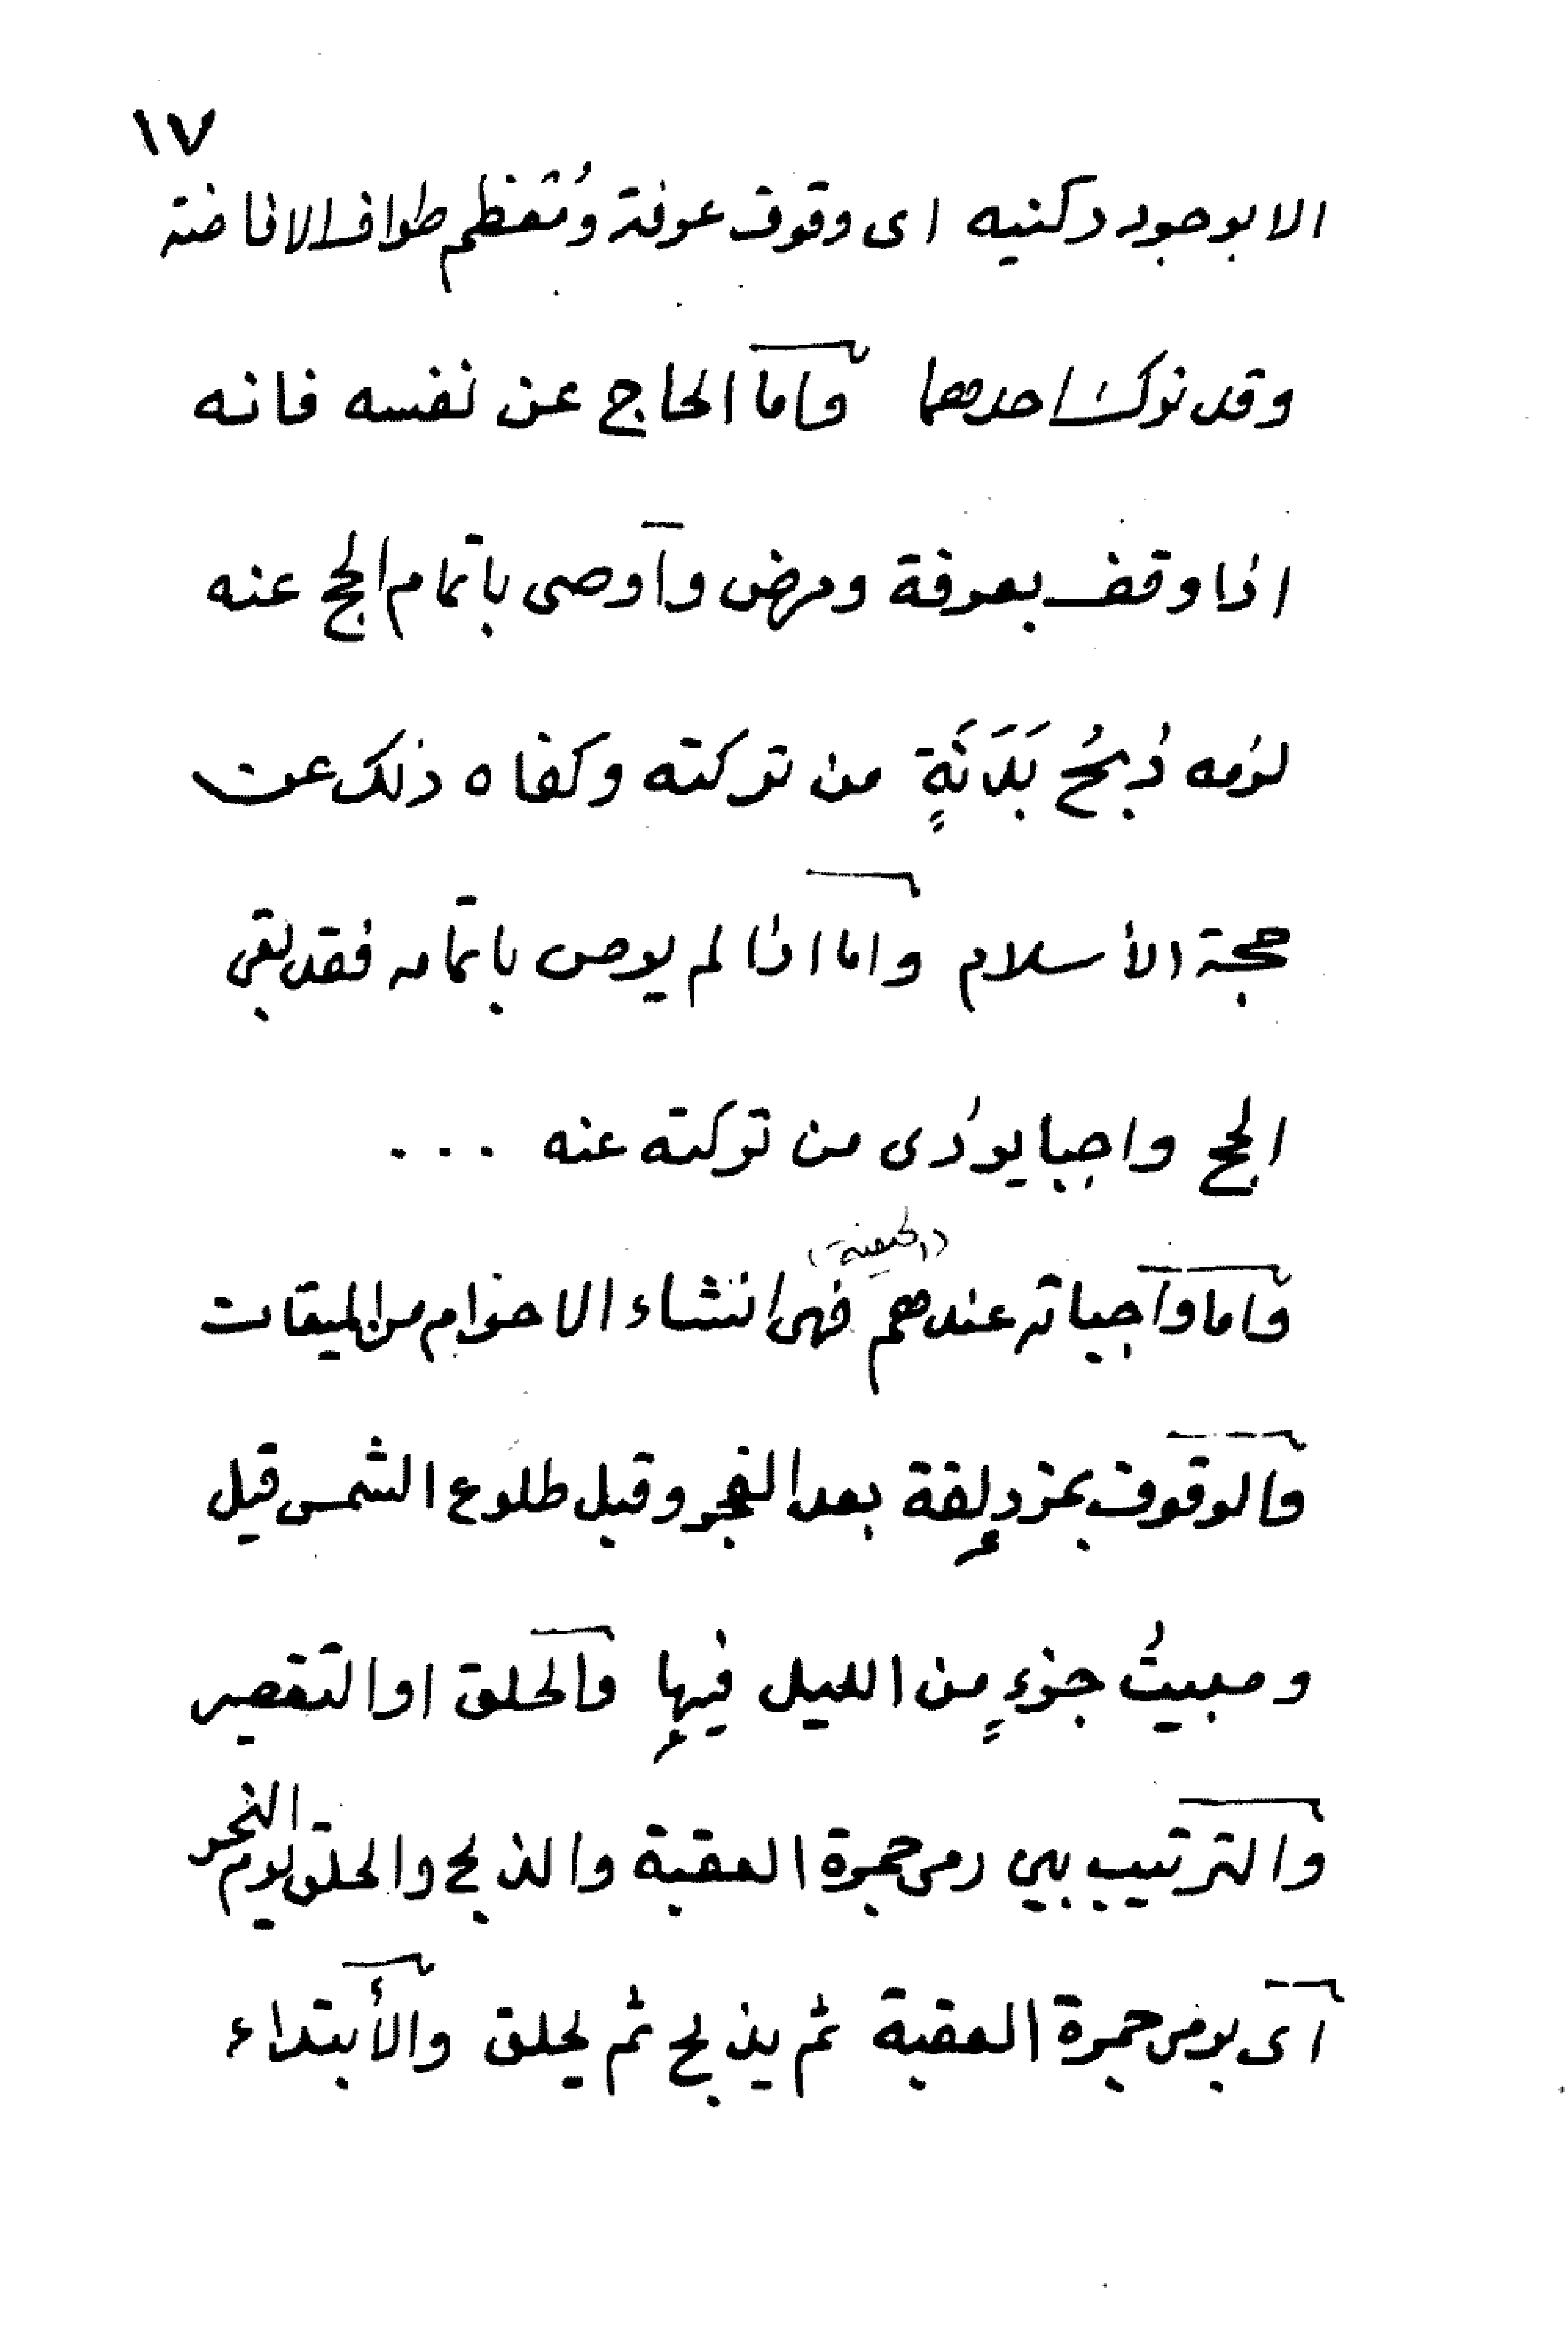 ١٧
الا بوجود ركنيه اى وقوف عرفة ومُعظم طواف الافاضة
وقد ترك احدهما واما الحاج عن نفسه فانه
اذا وقف بعرفة ومرض وأوصى باتمام الحج عنه
لزمه ذبحُ بَدَنَةٍ من تركته وكفاه ذلك عن
حجة الأسلام واما اذا لم يوص باتمامه فقد بقى
الحج واجبا يؤدى من تركته عنه ...
(الحنفية)
واما واجباته عندهم فهى انشاء الاحرام من الميقات
والوقوف بمزدلفة بعد الفجر وقبل طلوع الشمس قيل
ومبيتُ جزءٍ من الليل فيها والحلق او التقصير
والترتيب بين رمى جمرة العقبة والذبح والحلق يوم النحر
اى يرمى جمرة العقبة ثم يذبح ثم يحلق والأبتداء